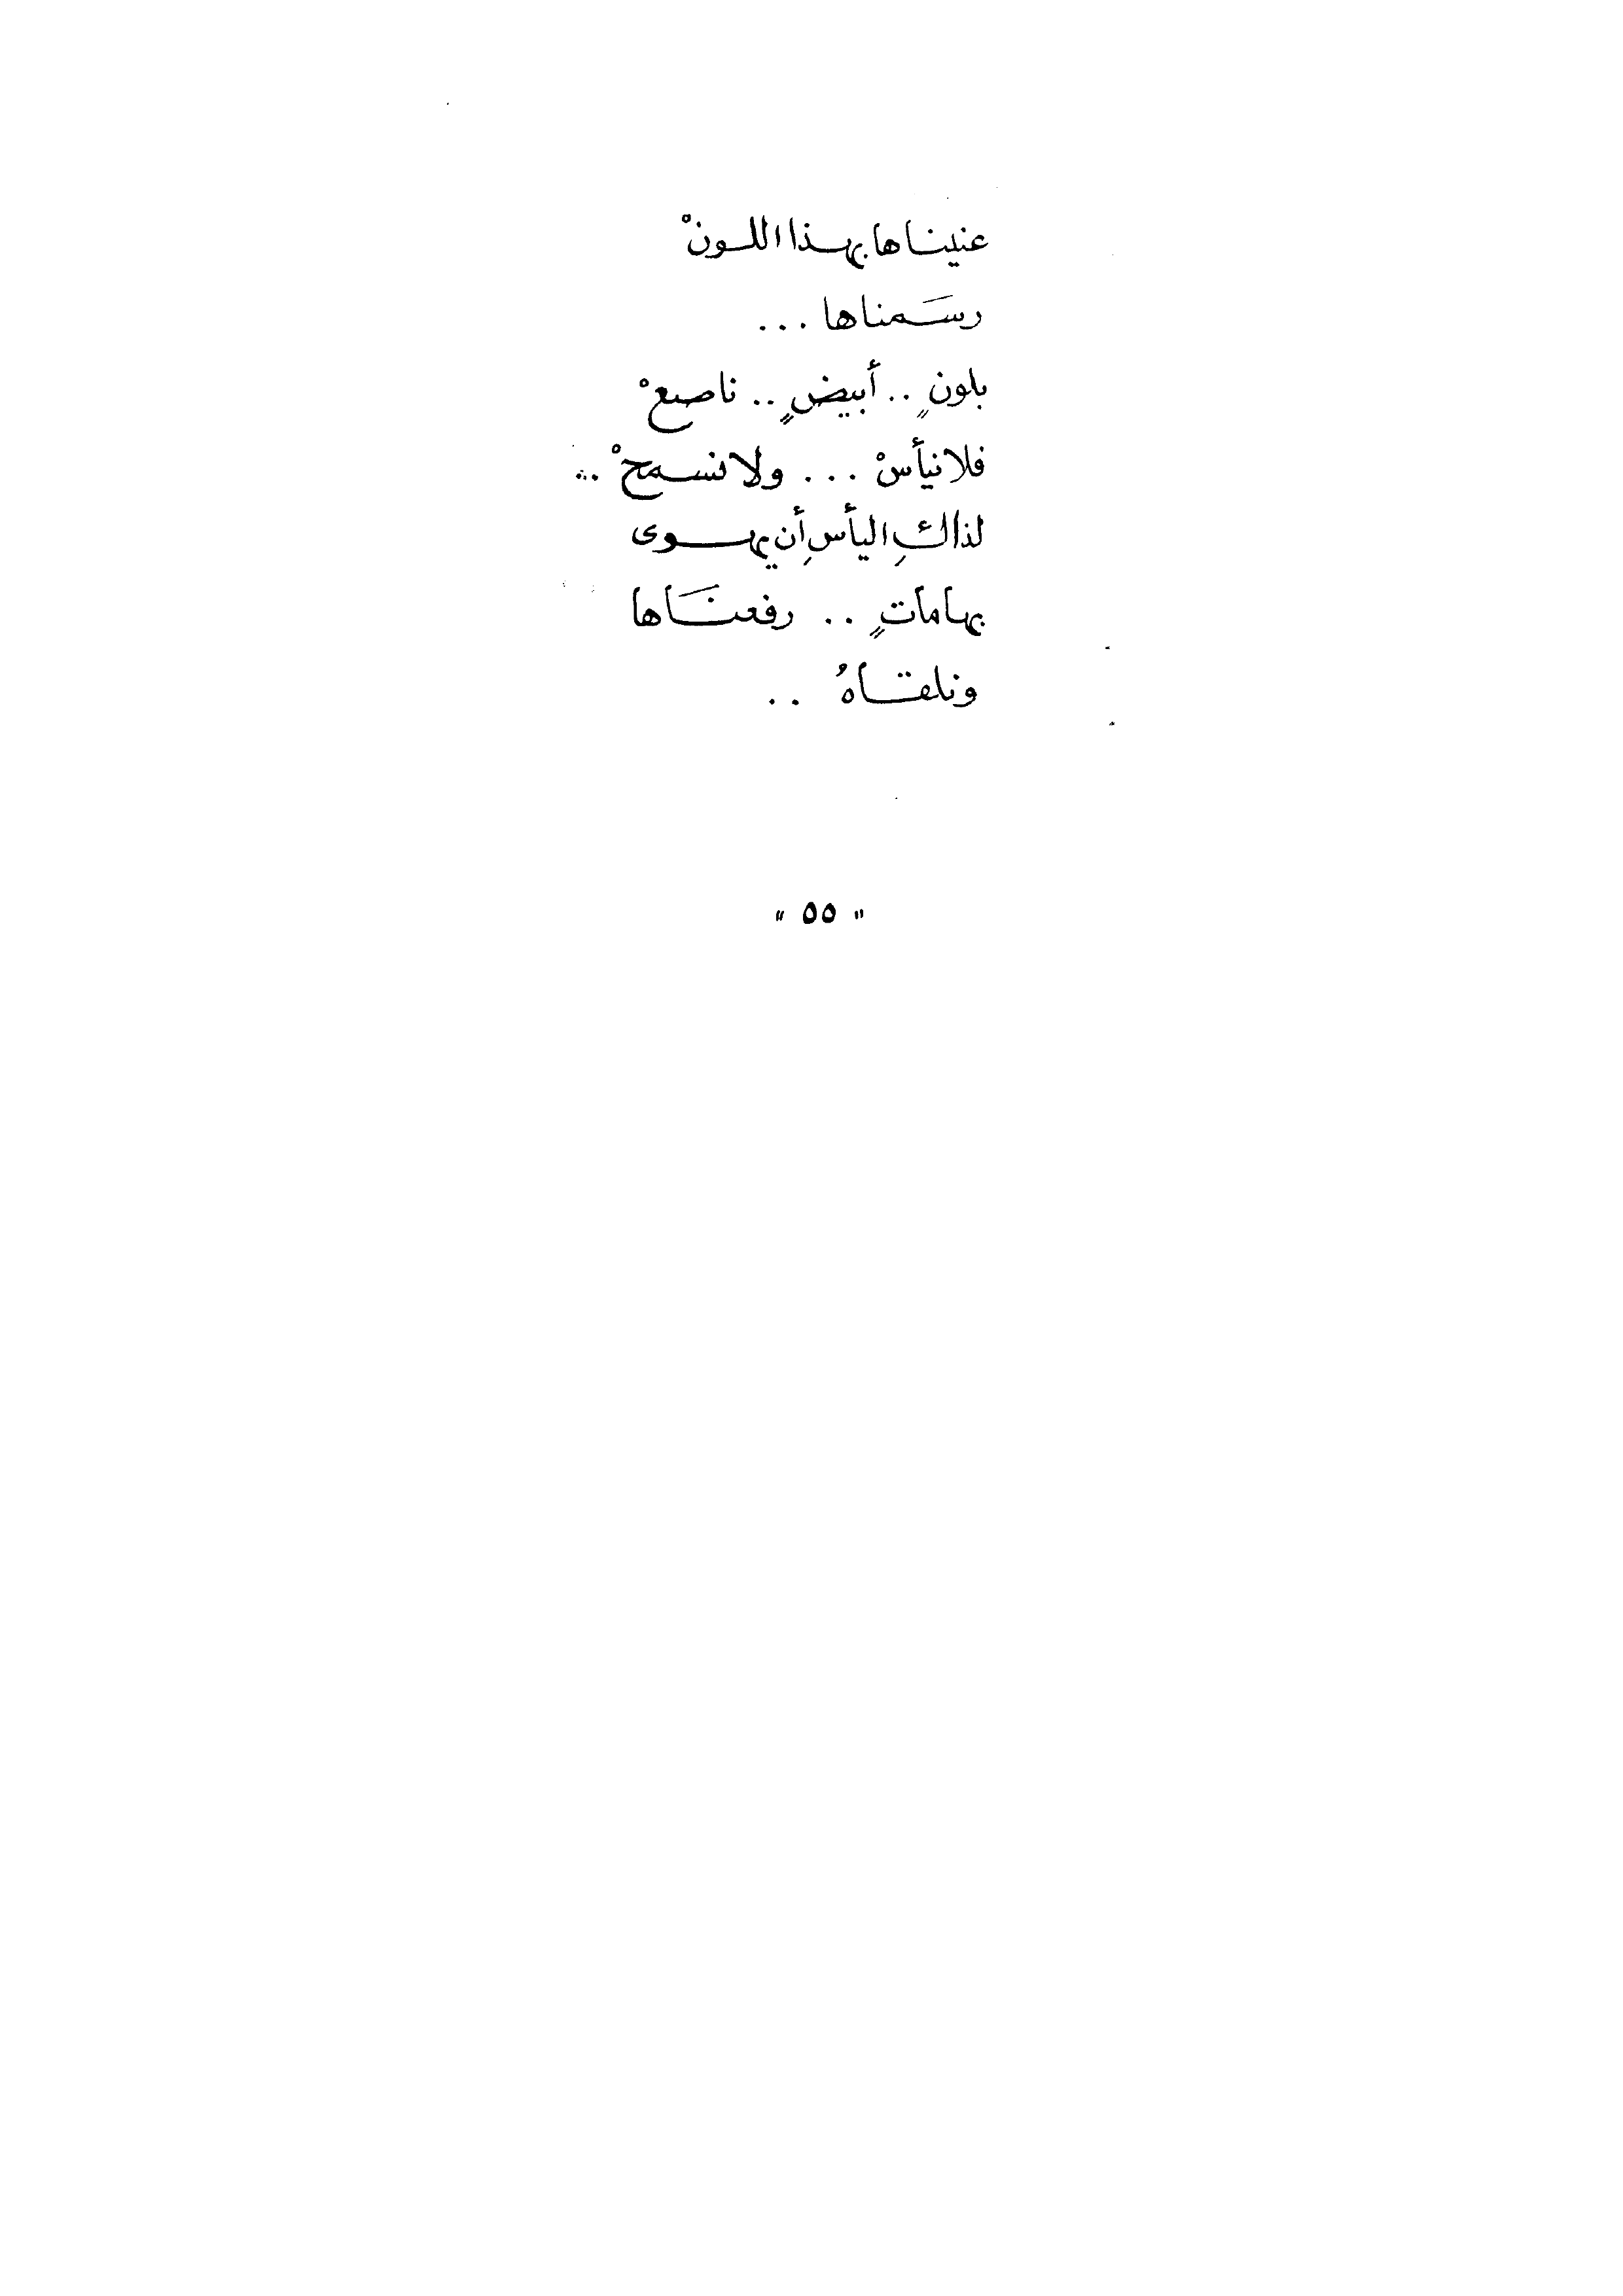 عنيناها بهذا اللونْ
رسَمناها ...
بلونٍ .. أبيضٍ .. ناصعْ
فلا نيأسْ ... ولا نسمحْ ..
لذاكِ اليأسِ أن يهوى
بهاماتٍ .. رفعنَاها
ونلقاهُ ..
" ٥٥ "